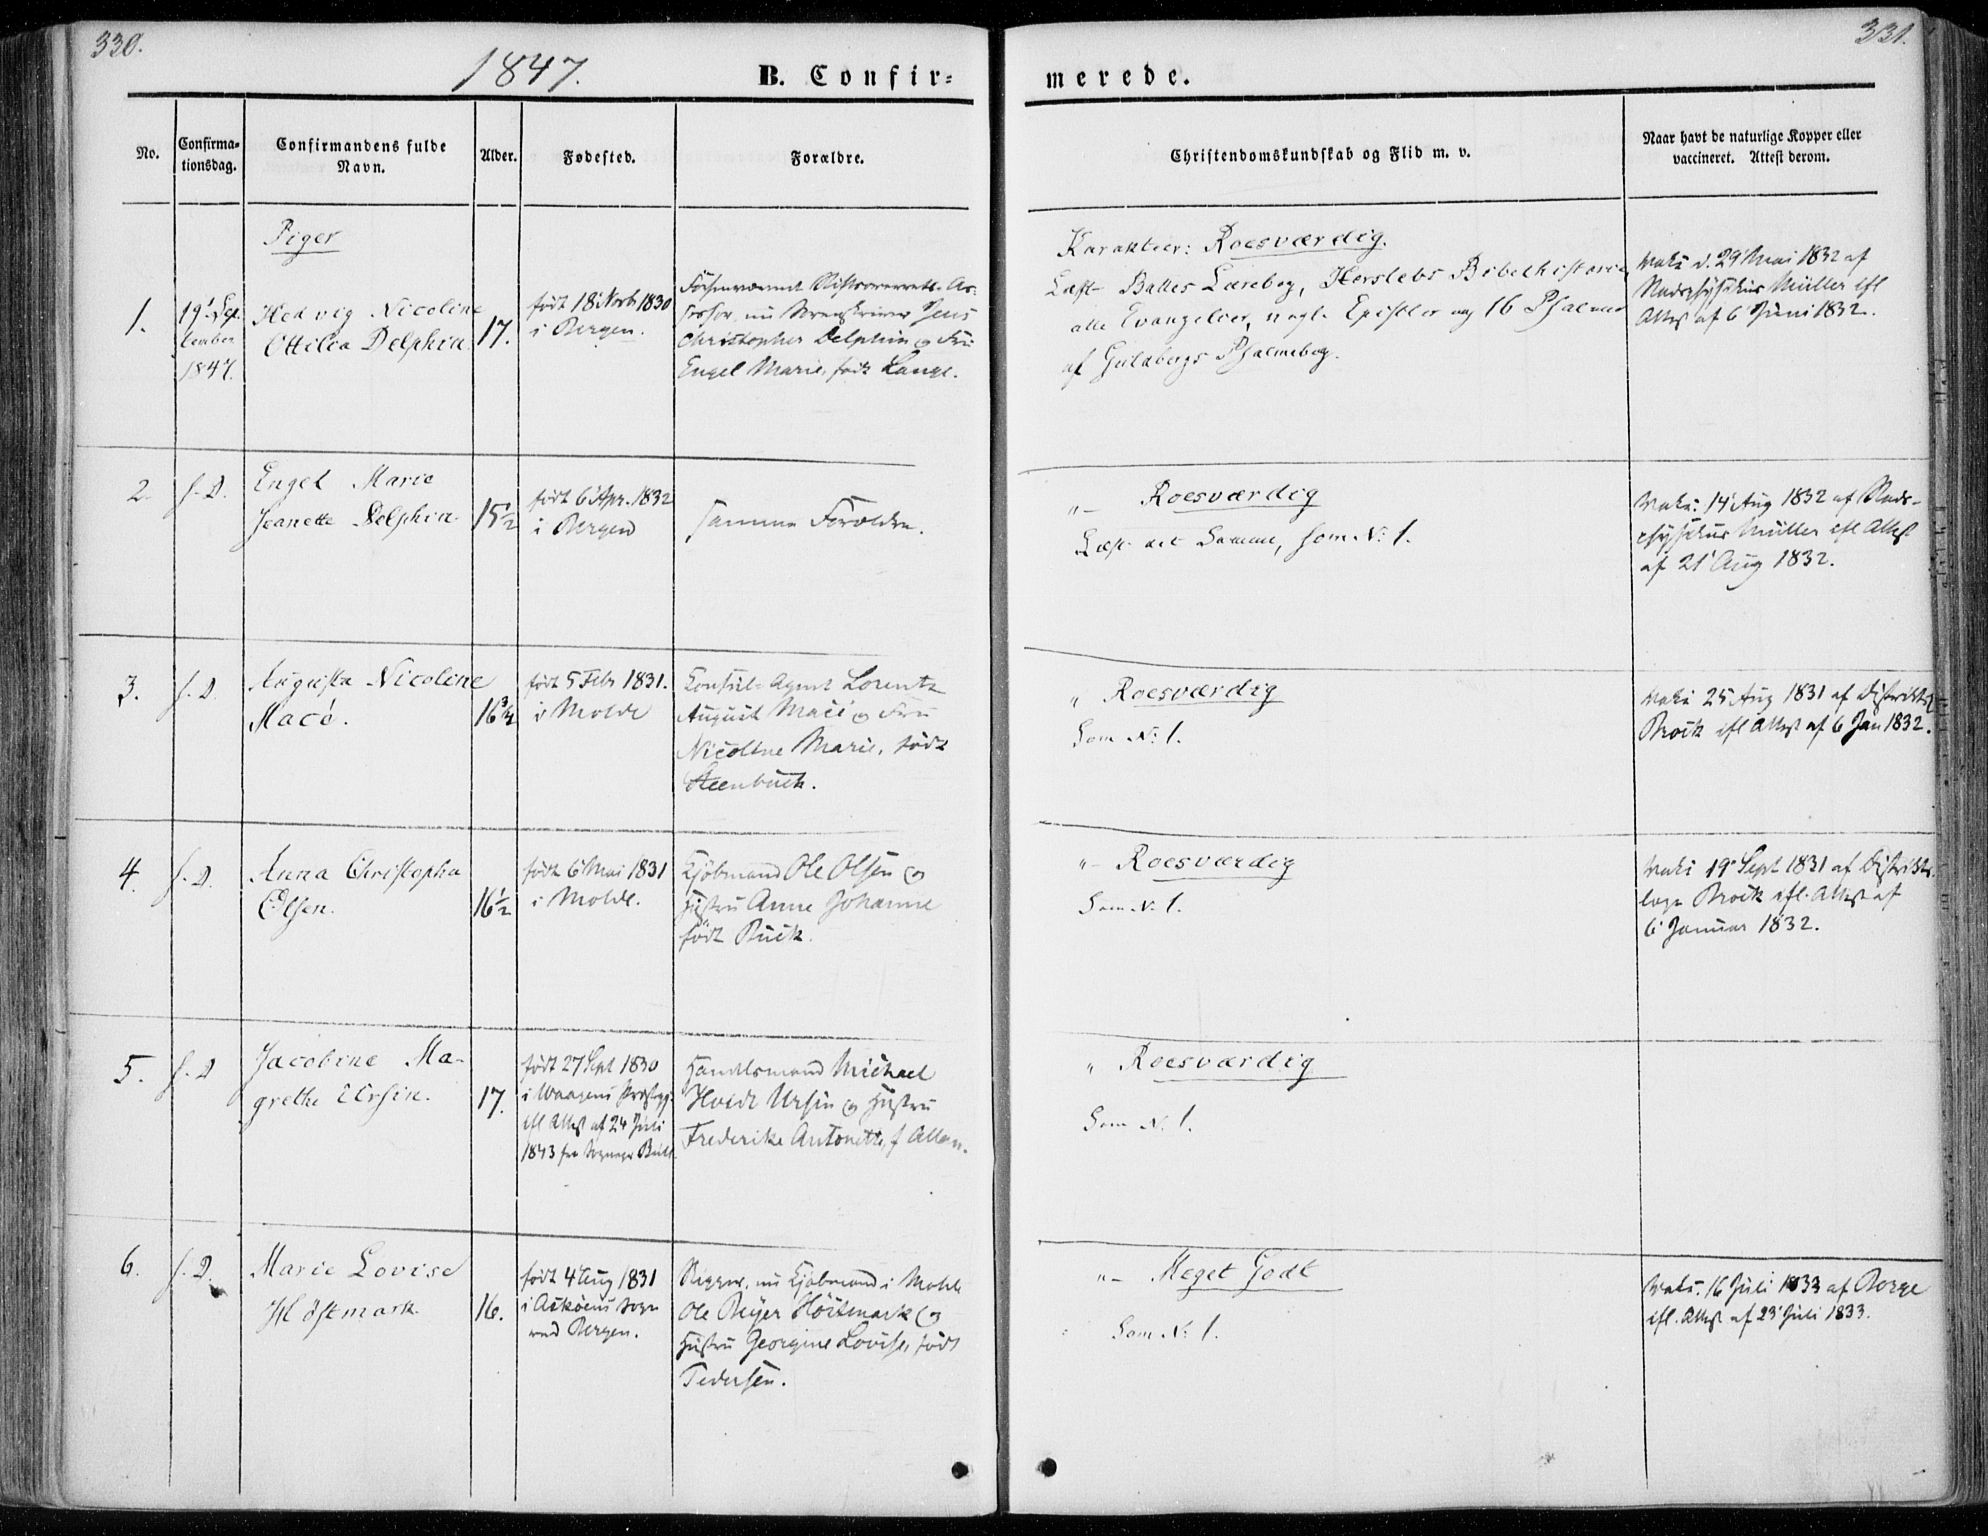 330.
1847.
B. Confir=
No.
Confirma=
tionsdag.
Confirmandens fulde
Navn.
Alder.
Fødested.
Forældre.
Piger
1.
19' Sep
tember
1847.
Hedvig Nicoline
Ottilia Delphin
17.
født 18 Novb 1830
i Bergen.
sor, nu Sorenskriver Jens
Christopher Delphin og Fru
Engel Marie, født Lange.
2.
s. D.
Engel Marie
Jeanette Delphin
15 1/2
født 6 Apr. 1832
i Bergen
Samme Forældre.
3.
s. D.
Augusta Nicoline
Macé.
16 3/4
født 5 Febr 1831.
i Molde
Consul-Agent Lorentz
August Macé og Fru
Nicoline Marie, født
Steenbuch.
4.
s. D.
Anna Christopha
Olsen.
16 1/2
født 6 Mai 1831
i Molde.
Kjøbmand Ole Olsen og
Hustru Anne Johanne
født Buck.
5.
s. D
Jacobine Ma-
grethe Ursin.
17.
født 27 Sept 1830
i Waagens Præstegj.
efl Attest af 24 Juli
1843 fra
Handelsmand Michael
Hveдt Ursin og Hustru
Frederike Antonette, f Allan.
6.
s. D.
Marie Lovise
Høstmark
16.
født 4 Aug 1831
i Askøens Sogn
ved Bergen.
nu Kjøbmand i Molde
Ole Beyer Høstmark og
Hustru Georgine Lovise, født
Pedersen.
331.
merede.
Christendomskundskab og Flid m. v.
Naar havt de naturlige Kopper eller
vaccineret. Attest derom.
Karakteer: Roesværdig.
Læst Balles Lærebog, Herslebs Bibelhistorie
alle Evangelier, nogle Epistler og 16 Psalmer
af Guldbergs Psalmebog.
Vakc d. 29 Mai 1832 af
Stadsphysikus Müller efl
Attest af 6 Juni 1832.
"- Roesværdig
Læst det Samme, som No 1.
Vakc: 14 Aug 1832 af Stads-
physikus Müller efl Attest
af 21 Aug 1832.
" Roesværdig
Som No 1.
Vakc 25 Aug 1831 af Distriktsl
Brock efl Attest af 6 Jan 1832.
"- Roesværdig
Som No 1.
Vakc 19 Sept 1831 af Distrikts-
læge Brock efl. Attest af
6 Januar 1832.
" Roesværdig
Som No 1.
"- Meget Godt
Som No 1.
Vakc. 16 Juli 1833 af Berge
efl. Attest af 23 Juli 1833.